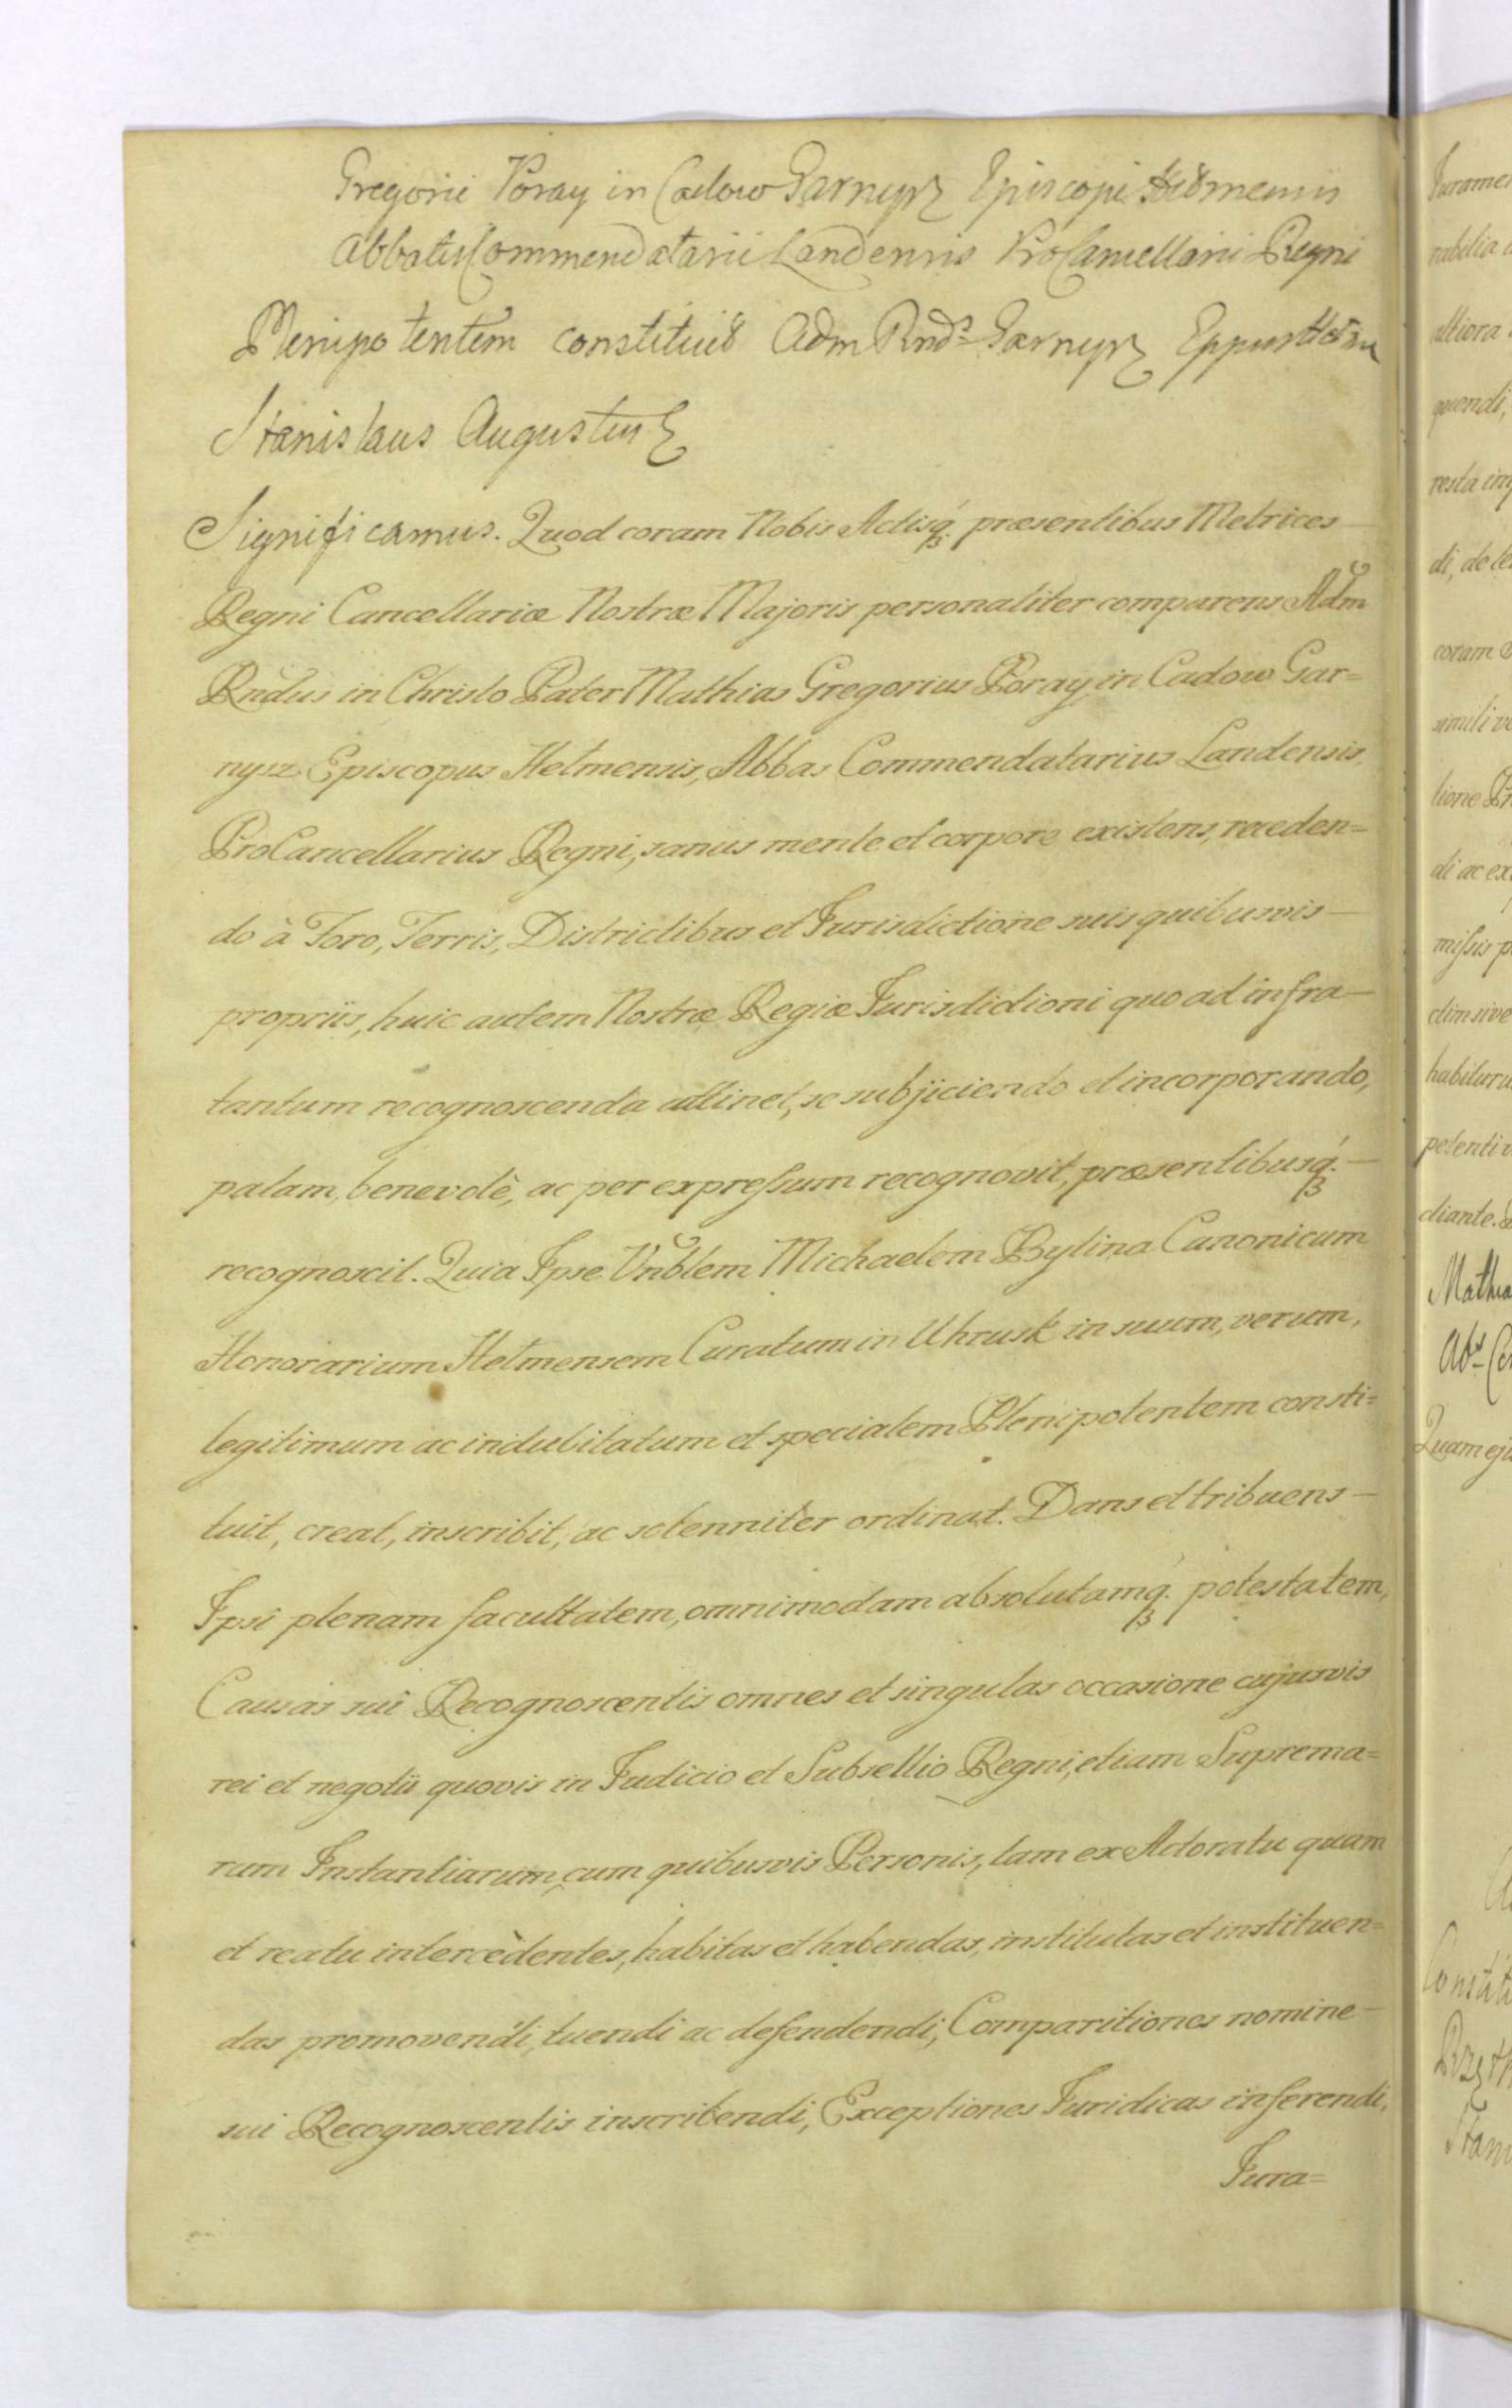 Gregorii Poray in Cadow Garnysz Episcopi Helmensis
Abbatis Commendatarii Landensis ProCancellarii Regni
Plenipotentem constituit Adm Rnds Garnysz Eppus Helmen
Stanislaus Augustus
Significamus. Quod coram Nobis Actisq́ꝫ præsentibus Metrices
Regni Cancellariæ Nostræ Majoris personaliter comparens Adm
Rndus in Christo Pater Mathias Gregorius Poray in Cadow Gar=
nysz Episcopus Helmensis, Abbas Commendatarius Landensis
ProCancellarius Regni, sanus mente et corpore existens, receden=
do à Foro, Terris, Districtibus et Jurisdictione suis quibusvis
propriis, huic autem Nostræ Regiæ Jurisdictioni quo ad infra
tantum recognoscenda attinet, se subjiciendo et incorporando,
palam, benevolè, ac per expreſsum recognovit, præsentibusq́ꝫ
recognoscit. Quia Ipse Vnblem Michaelem Bylina Canonicum
Honorarium Helmensem Curatum in Uhrusk in suum, verum,
legitimum ac indubitatum et specialem Plenipotentem consti=
tuit, creat, inscribit, ac solenniter ordinat. Dans et tribuens
Ipsi plenam facultatem, omnimodam absolutamq́ꝫ potestatem,
Causas sui Recognoscentis omnes et singulas occasione cujusvis
rei et negotii quovis in Judicio et Subsellio Regni, etiam Suprema=
rum Instantiarum, cum quibusvis Personis, tam ex Actoratu quam
et reatu intercèdentes, habitas et habendas, institutas et instituen=
das promovendi, tuendi ac defendendi, Comparitiones nomine
sui Recognoscentis inscribendi, Exceptiones Juridicas inferendi,
Jura=